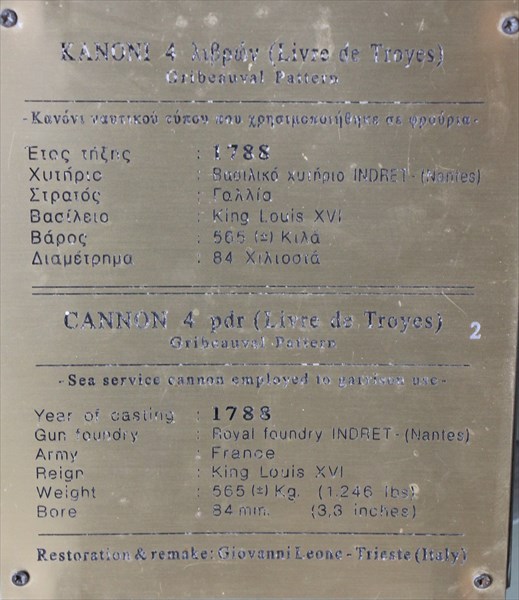 ΚΑΝΟΝΙ 4 λιβρών (Livre de Troyes)
Gribeauval Pattern
- Κανόνι ναυτικού τύπου που χρησιμοποιήθηκε σε φρούρια -
Έτος τήξης : 1788
Χυτήριο : Βασιλικό χυτήριο INDRET - (Nantes)
Στρατός : Γαλλία
Βασίλειο : King Louis XVI
Βάρος : 565 (±) Κιλά
Διαμέτρημα : 84 Χιλιοστά
CANNON 4 pdr (Livre de Troyes)
2
Gribeauval Pattern
- Sea service cannon employed to garrison use -
Year of casting : 1788
Gun foundry : Royal foundry INDRET - (Nantes)
Army : France
Reign : King Louis XVI
Weight : 565 (±) Kg. (1.246 lbs)
Bore : 84 mm. (3,3 inches)
Restoration & remake: Giovanni Leone - Trieste (Italy)